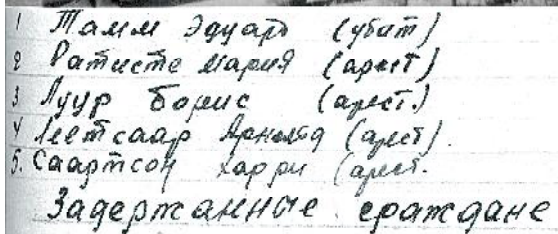 1 Тамм Эдуард (убит)
2 Ратисте Мария (арест)
3 Луур Борис (арест.)
4 Леетсаар Арнольд (арест).
5. Саартсон Харри (арест.
Задержанные граждане